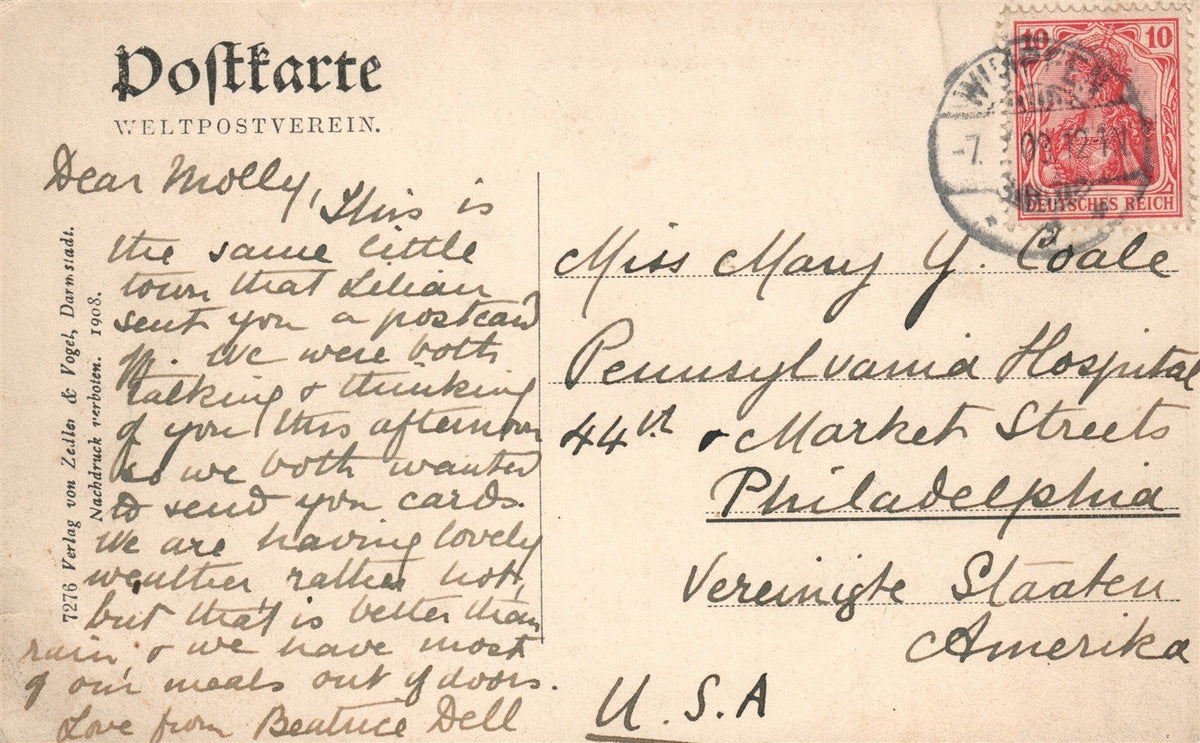 Postkarte
WELTPOSTVEREIN.
Dear Molly,
This is
the same little
town that Lilian
sent you a postcard
of. We were both
talking & thinking
of you this afternoon
so we both wanted
to send you cards.
We are having lovely
weather rather hot,
but that is better than
rain, & we have most
of our meals out of doors.
Love from Beatrice Dell
7276 Verlag von Zedler & Vogel, Darmstadt.
Nachdruck verboten. 1908.
10 10
DEUTSCHES REICH
-7. 09.12-1N
Miss Mary Y. Coale
Pennsylvania Hospital
44th & Market Streets
Philadelphia
Vereinigte Staaten
Amerika
U.S.A